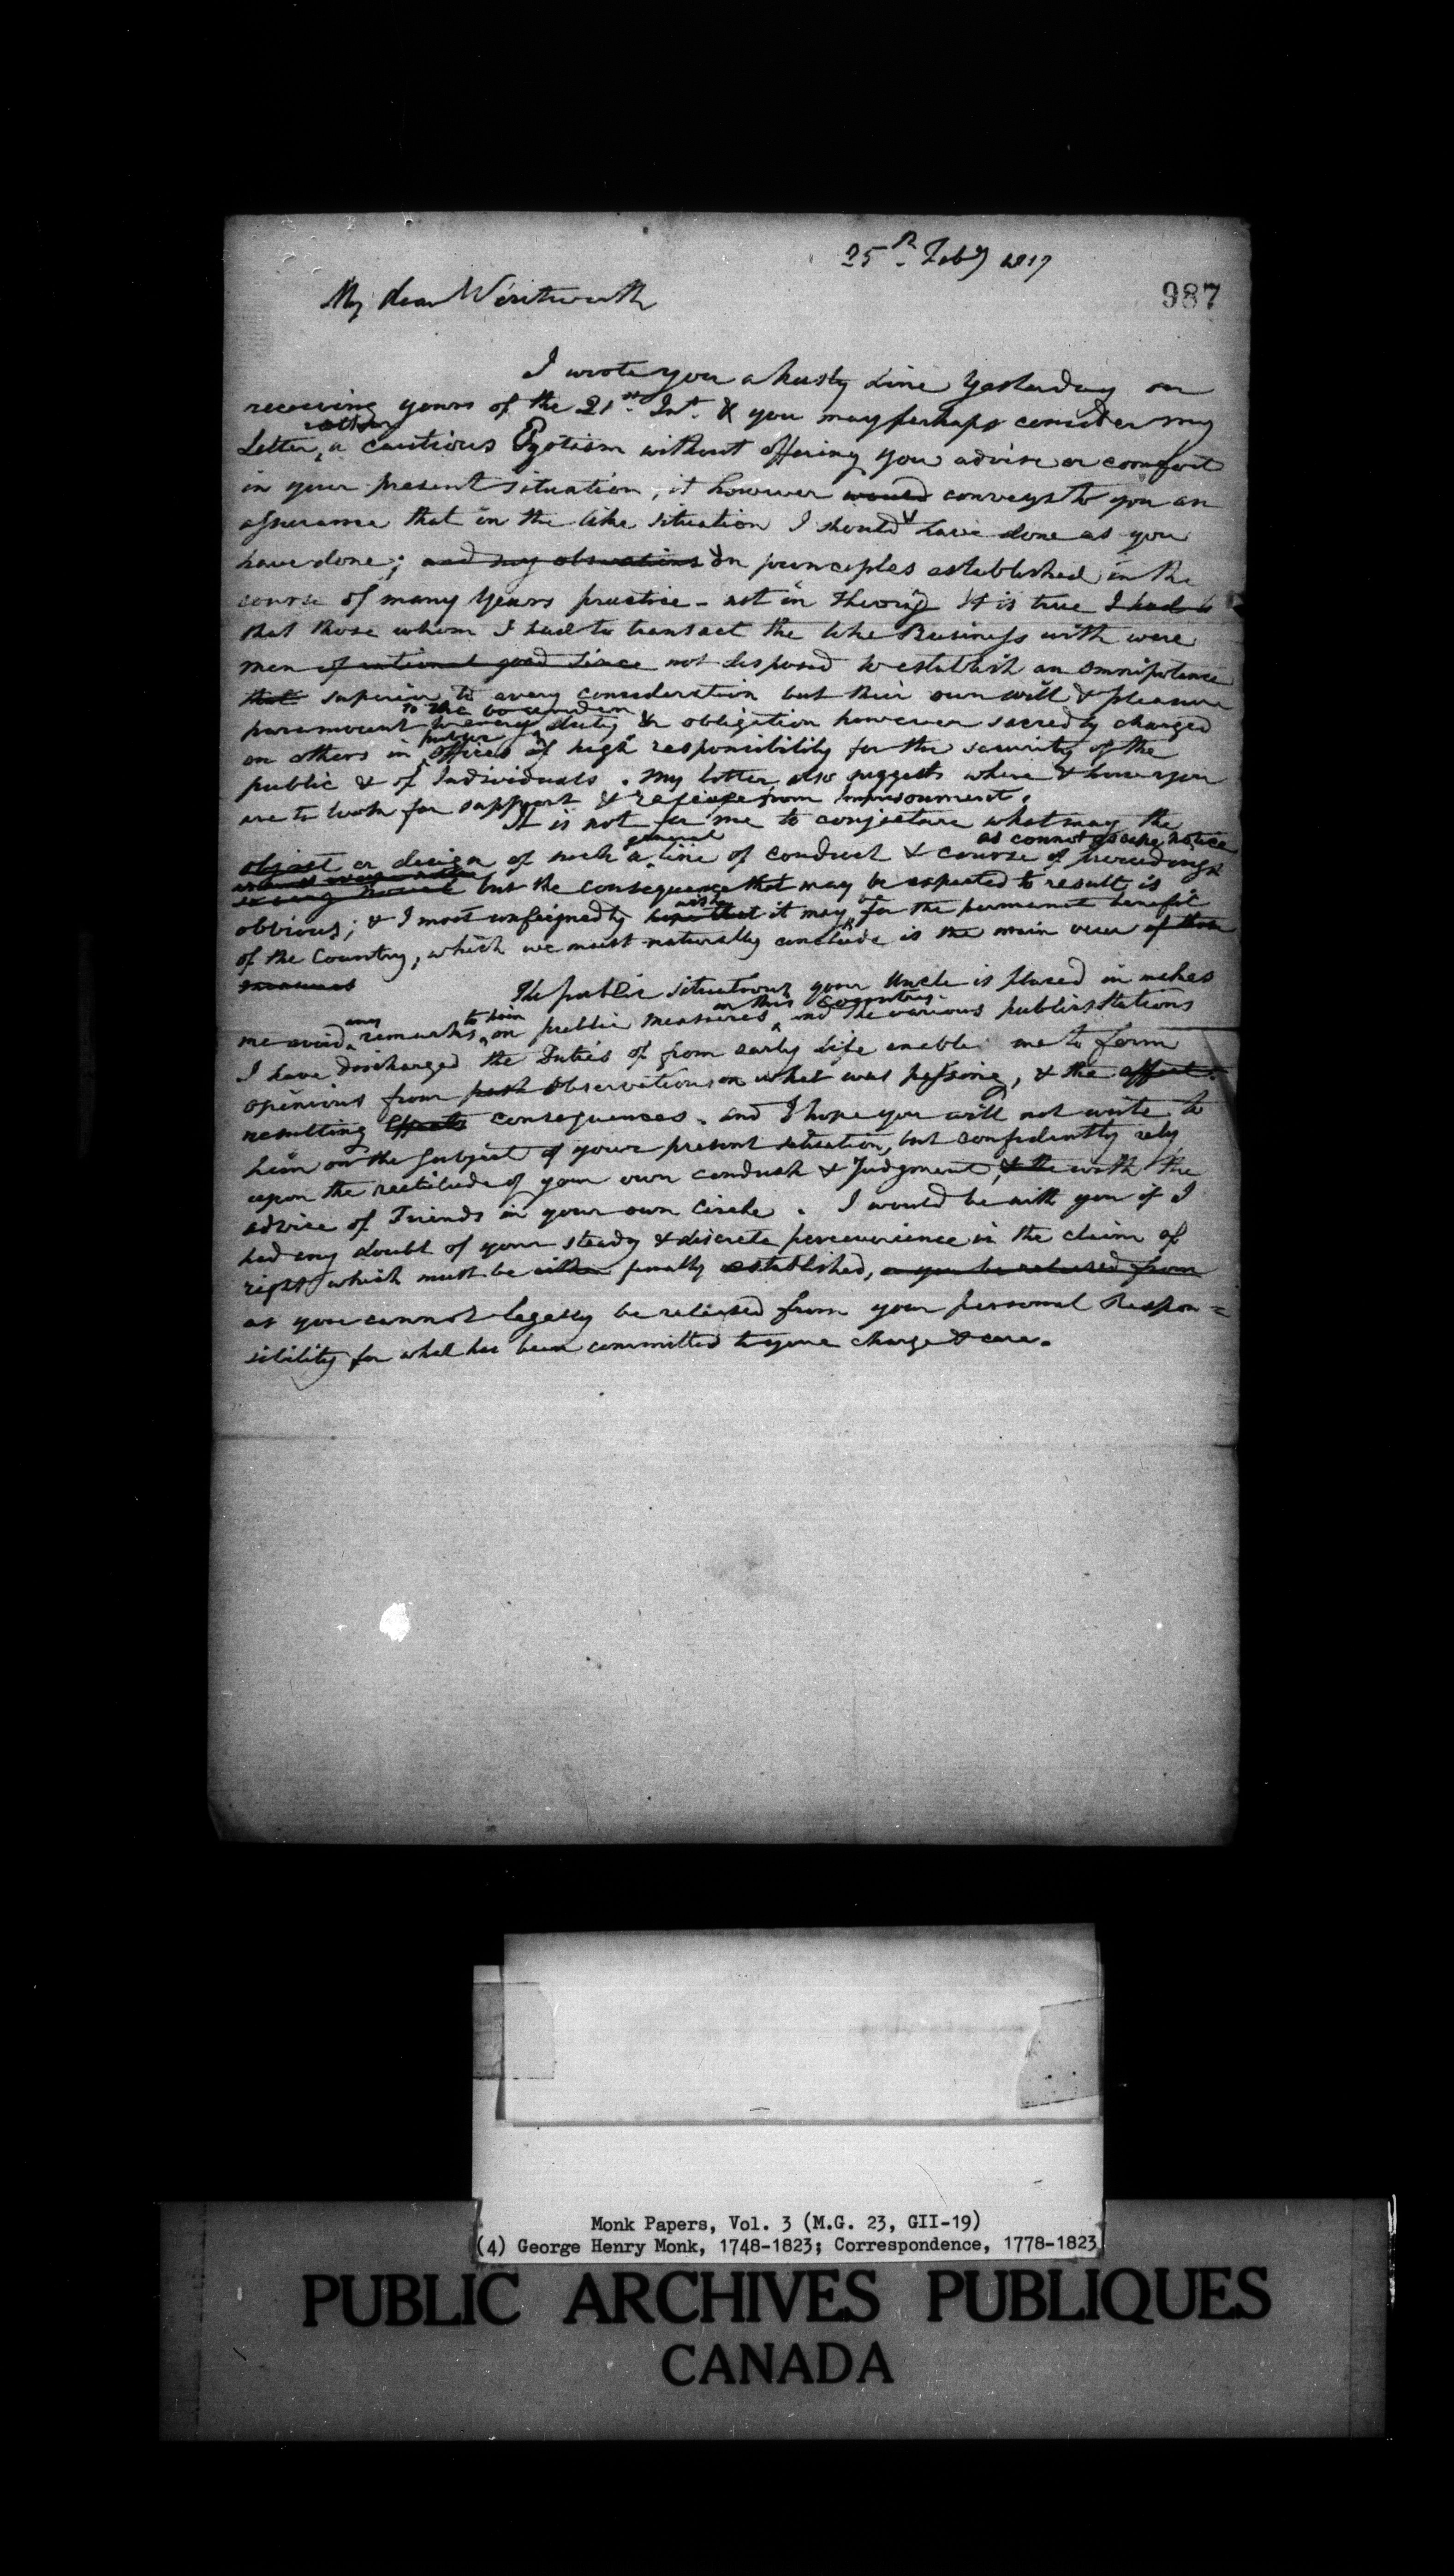 25th Feby 1817
987
My dear Wentworth
I wrote you a hasty Line Yesterday on
receiving yours of the 21st Inst. & you may perhaps consider my
rather
Letter, a cautious Egotism without offering you advise or comfort
in your present situation, it however would conveys to you an
assurance that in the like situation I should have done as you
have done; and my observations on principles established in the
course of many Years practice - not in theory It is true I had to
that those whom I had to transact the like Business with were
men of rational good sense not disposed to establish an omnipotence
that superior to every consideration but their own will & pleasure
to the bounden
paramount to every duty & obligation however sacredly charged
public
on others in offices of high responsibility for the security of the
public & of Individuals. My letter also suggests where & how you
are to look for support & release from Imprisonment.
It is not for me to conjecture what may the
general as cannot escape notice
object or design of such a line of conduct & course of proceedings
so very novel but the consequence that may be expected to result is
wish be
obvious; & I most unfeignedly hope that it may for the permanent benefit
of the Country, which we must naturally conclude is the main view of those
measures
The public situations your Uncle is placed in makes
any to him in this Country
me avoid remarks on public measures and the various public Stations
I have discharged the Duties of from early life enable me to form
opinions from past observations on what was passing, & the effects
resulting Effects consequences. and I hope you will not write to
him on the Subject of your present situation, but confidently rely
upon the rectitude of your own conduct & Judgment, & the with the
advise of Friends in your own Circle. I would be with you if I
had any doubt of your steady & discrete perseverience in the claim of
right which must be either finally established, or you be released from
as you cannot legally be released from your personal Respon=
sibility for what has been committed to your charge & care.
Monk Papers, Vol. 3 (M.G. 23, GII-19)
(4) George Henry Monk, 1748-1823; Correspondence, 1778-1823
PUBLIC ARCHIVES PUBLIQUES
CANADA